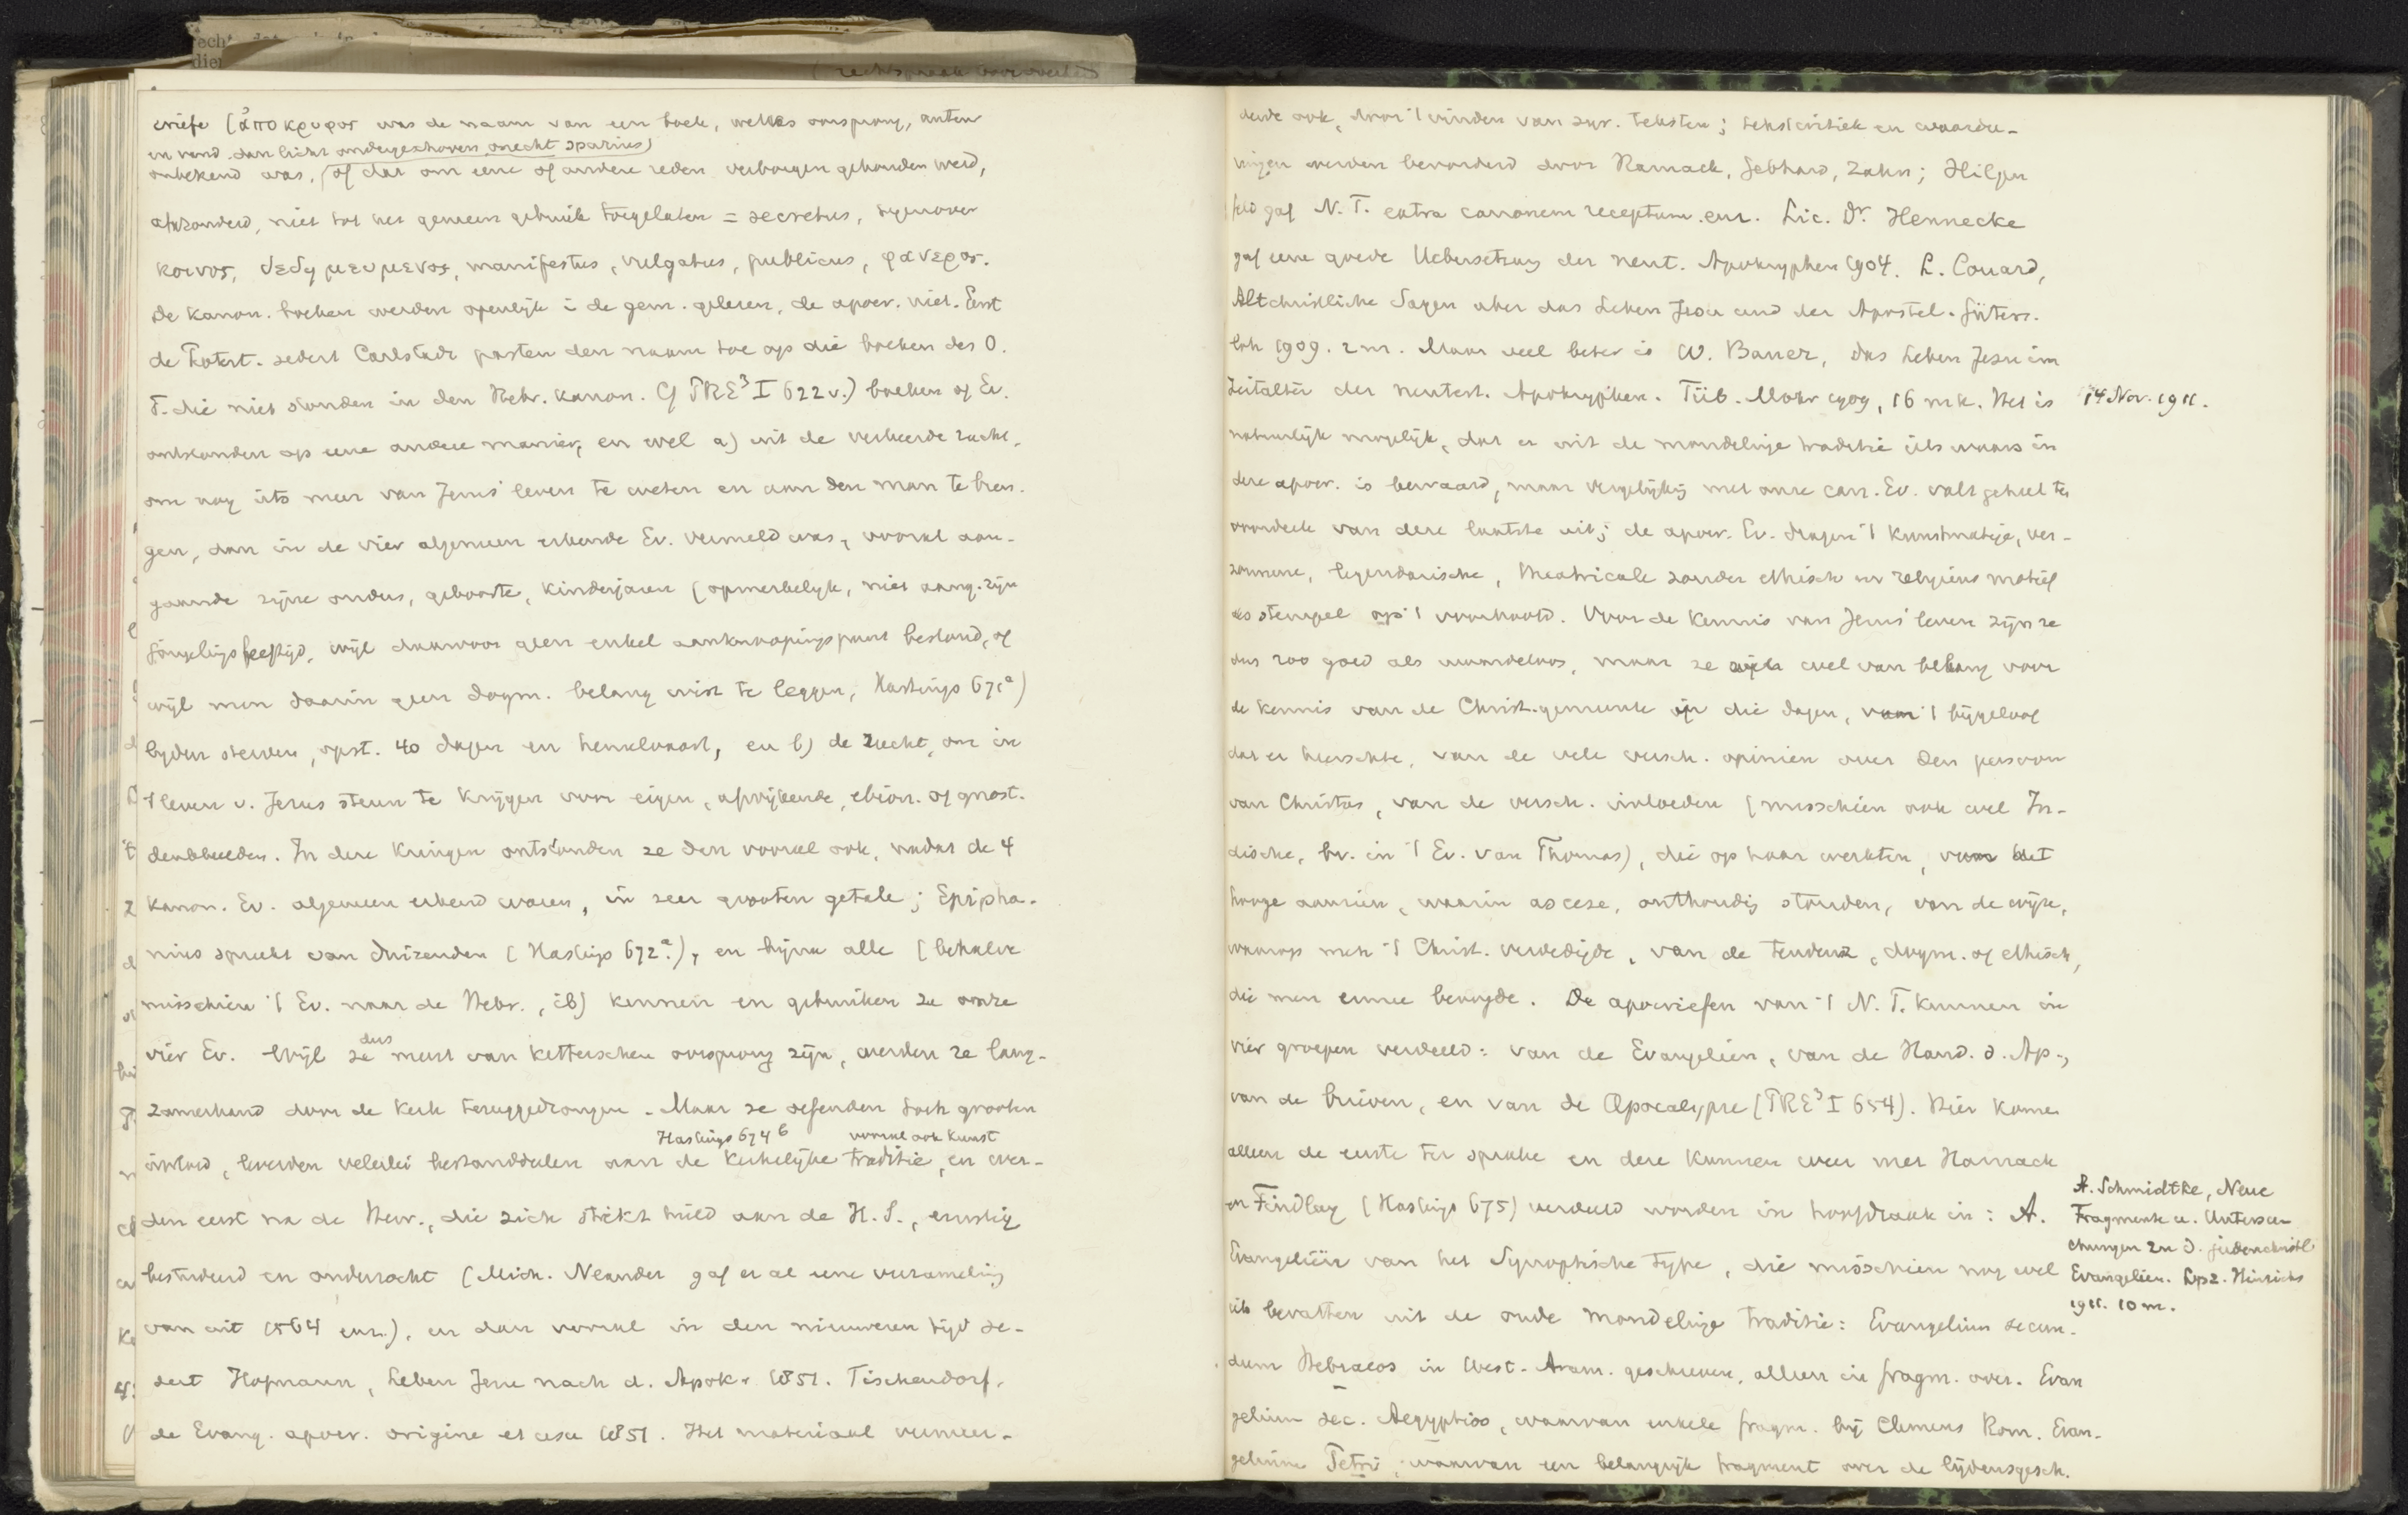 criefe (ἀποκρυφος was de naam van een boek, welks oorsprong, auteur
en vand. dan licht ondergeschoven onecht spurius)
onbekend was, of dat om eene of andere reden verborgen gehouden werd,
afgezonderd, niet tot het gemeen gebruik toegelaten = secretus, tegenover
κοινος, δεδημευμενος, manifestus, vulgatus, publicus, φανερος.
De kanon. boeken werden openlijk i de gem. gelezen, de apocr. niet. Eerst
de Protest. sedert Carlstadt pasten den naam toe op die boeken des O.
T. die niet stonden in den Hebr. kanon. Cf PRE³ I 622 v.) boeken of Ev.
ontstonden op eene andere manier, en wel a) uit de verkeerde zucht,
om nog iets meer van Jezus' leven te weten en aan den man te bren-
gen, dan in de vier algemeen erkende Ev. vermeld was, vooral aan-
gaande zijne ouders, geboorte, kinderjaren (opmerkelijk, niet aang. zijn
jongelingsleeftijd, wijl daarvoor geen enkel aanknoopingspunt bestond, of
wijl men daarin geen dogm. belang wist te leggen, Hastings 671ᵃ)
lijden sterven, opst. 40 dagen en hemelvaart, en b) de zucht, om in
't leven v. Jezus steun te krijgen voor eigen, afwijkende, ebion. of gnost.
denkbeelden. In deze kringen ontstonden ze dan vooral ook, nadat de 4
kanon. Ev. algemeen erkend waren, in zeer grooten getale; Epipha-
nius spreekt van duizenden (Hastings 672ᵃ.), en bijna alle (behalve
misschien 't Ev. naar de Hebr., ib) kennen en gebruiken ze onze
vier Ev. Wijl ze dus meest van ketterschen oorsprong zijn, werden ze lang-
zamerhand door de kerk teruggedrongen. Maar ze oefenden toch grooten
Hastings 674ᵇ vooral ook kunst
invloed, leverden velerlei bestanddeelen aan de kerkelijke traditie, en wer-
den eerst na de Herv., die zich strikt hield aan de H. S., ernstig
bestudeerd en onderzocht (Mich. Neander gaf er al eene verzameling
van uit 1564 enz.), en dan vooral in den nieuweren tijd se-
dert Hofmann, Leben Jesu nach d. Apokr. 1851. Tischendorf,
de Evang. apocr. origine et usu 1851. Het materiaal vermeer-
derde ook, door 't vinden van syr. teksten; tekstcritiek en waardee-
ringen werden bevorderd door Harnack, Gebhard, Zahn; Hilgen
feld gaf N. T. extra canonem receptum. enz. Lic. Dr. Hennecke
gaf eene goede Uebersetzung der neut. Apokryphen 1904. L. Couard,
Altchristliche Sagen über das Leben Jesu und der Apostel. Güters-
loh 1909. 2 m. Maar veel beter is W. Bauer, das Leben Jesu im
Zeitalter der neutest. Apokryphen. Tüb. Mohr 1909, 16 mk. Het is
14 Nov. 1911.
natuurlijk mogelijk, dat er uit de mondelinge traditie iets waars in
deze apocr. is bewaard, maar vergelijking met onze can. Ev. valt geheel ten
voordeele van deze laatste uit; de apocr. Ev. dragen 't kunstmatige, ver-
zonnene, legendarische, theatricale zonder ethisch en religieus motief
als stempel op 't voorhoofd. Voor de kennis van Jezus' leven zijn ze
dus zoo goed als waardeloos, maar ze zijn wel van belang voor
de kennis van de Christ. gemeente in die dagen, van 't bijgeloof
dat er heerschte, van de vele versch. opinien over den persoon
van Christus, van de versch. invloeden (misschien ook wel In-
dische, bv. in 't Ev. van Thomas), die op haar werkten, van het
hooge aanzien, waarin ascese, onthouding stonden, van de wijze,
waarop men 't Christ. verdedigde, van de tendenz, dogm. of ethisch,
die men ermee beoogde. De apocriefen van 't N. T. kunnen in
vier groepen verdeeld: van de Evangeliën, van de Hand. d. Ap.,
van de brieven, en van de Apocalypse (PRE³ I 654). Hier komen
alleen de eerste ter sprake en deze kunnen weer met Harnack
en Findlay (Hastings 675) verdeeld worden in hoofdzaak in: A.
Evangeliën van het Synoptische type, die misschien nog wel
iets bevatten uit de oude mondelinge traditie: Evangelium secun-
dum Hebraeos in West-Aram. geschreven, alleen in fragm. over. Evan
gelium sec. Aegyptios, waarvan enkele fragm. bij Clemens Rom. Evan-
gelium Petri, waarvan een belangrijk fragment over de lijdensgesch.
A. Schmidtke, Neue
Fragmente u. Untersu-
chungen zu d. judenchristl
Evangelien. Lpz. Hinrichs
1911. 10 m.